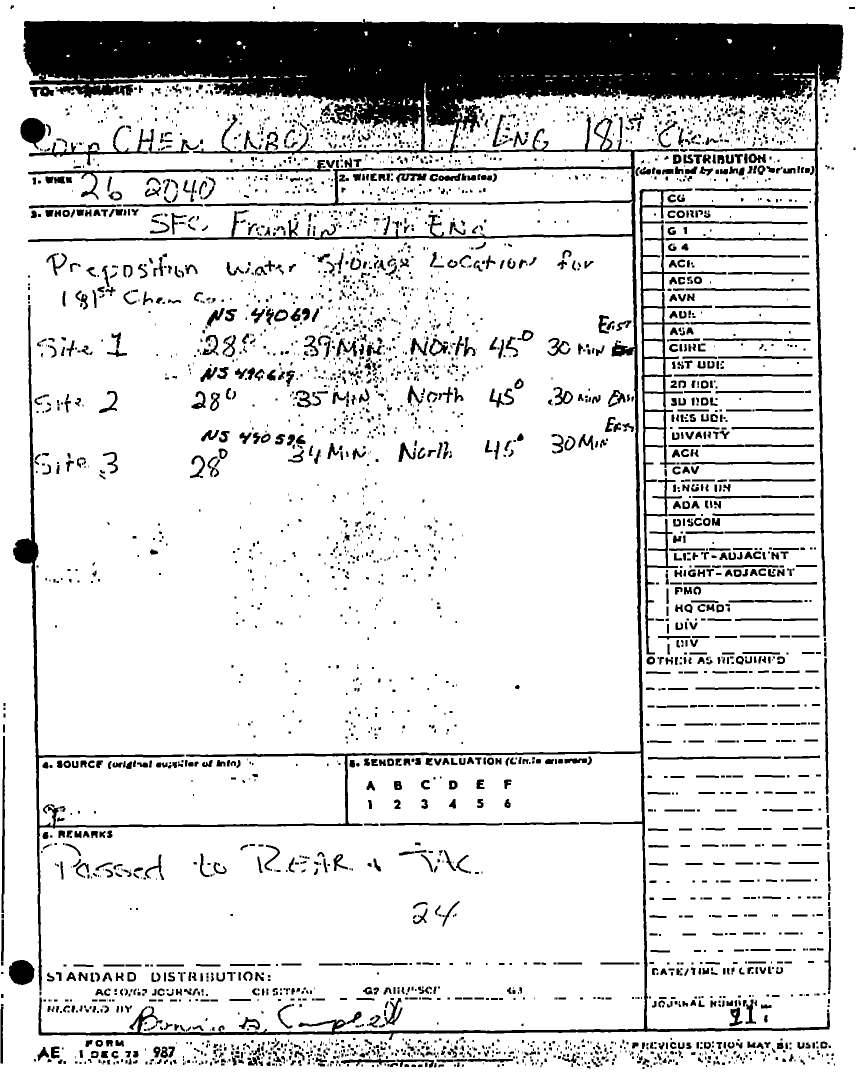 TO:
Corp CHEM (NBC) 1st ENG 181st Chem
EVENT
1. WHEN 26 2040
2. WHERE (UTM Coordinates)
3. WHO/WHAT/WHY SFC Franklin 7th ENG
Preposition Water Storage Location for
181st Chem Co.
NS 490691
Site 1 28° 39 MIN North 45° 30 MIN EAST
NS 490619
Site 2 28° 35 MIN North 45° 30 MIN EAST
NS 490596
Site 3 28° 34 MIN North 45° 30 MIN EAST
DISTRIBUTION
(determined by using HQ or units)
CG
CORPS
G 1
G 4
ACE
ACSO
AVN
ADE
ASA
CURE
1ST BDE
2D BDE
3D BDE
RES BDE
DIVARTY
ACR
CAV
ENGR BN
ADA BN
DISCOM
MI
LEFT-ADJACENT
RIGHT-ADJACENT
PMO
HQ CMDT
DIV
DIV
OTHER AS REQUIRED
4. SOURCE (original supplier of info)
5. SENDER'S EVALUATION (Circle answers)
A B C D E F
1 2 3 4 5 6
6. REMARKS
Passed to REAR & TAC
24
STANDARD DISTRIBUTION:
ACTO/G2 JOURNAL CH SITMAP G2 AIR/FSCE G3
RECEIVED BY Bonnie D. Campbell
DATE/TIME RECEIVED
JOURNAL NUMBER
AE FORM 1 DEC 73 987
PREVIOUS EDITION MAY BE USED.